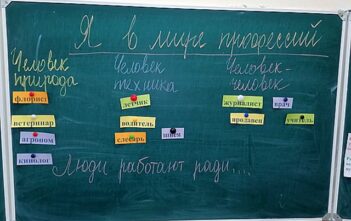 Я в мире профессий
Человек природа
Человек техника
Человек-человек
флорист
ветеринар
агроном
кинолог
летчик
водитель
слесарь
швея
журналист
врач
продавец
учитель
Люди работают ради....